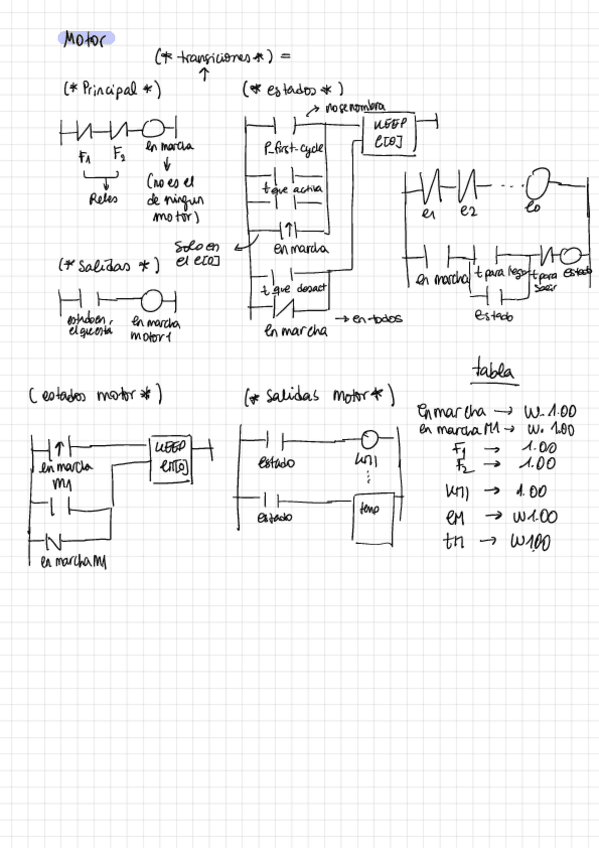 Motor
(* transiciones *) =
(* Principal *)
F1
F2
en marcha
Reles
(no es el
de ningun
motor)
(* estados *)
no se nombra
P_first-cycle
KEEP
e[0]
t que activa
en marcha
Solo en
el e[0]
t que desact
en marcha
→ en todos
e1
e2
...
e0
en marcha
t para llegar
t para
salir
estado
estado
(* Salidas *)
estado en
el que esta
en marcha
motor 1
(estados motor *)
en marcha
M1
KEEP
en marcha M1
(* Salidas motor *)
estado
estado
temp
tabla
en marcha → W.1.00
en marcha M1 → W.1.00
F1 → 1.00
F2 → 1.00
KM1 → 1.00
eM → W1.00
tM → W1.00